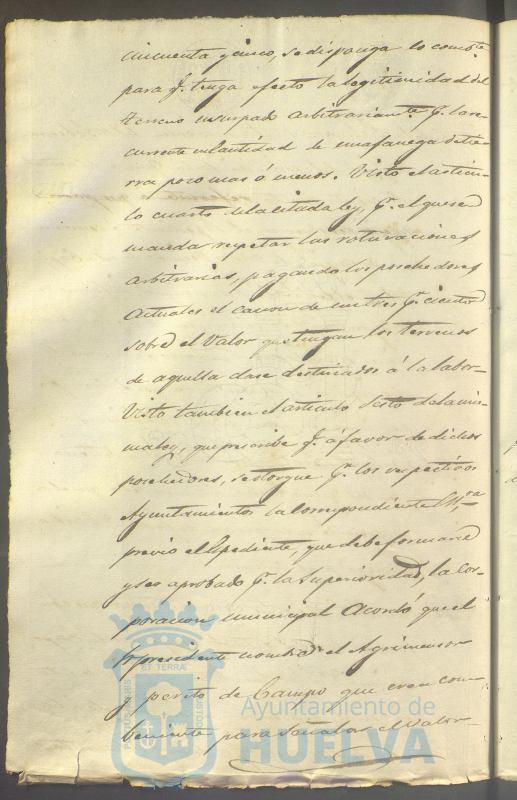 cincuenta y cinco, se disponga lo comb.te
para q.e tenga efecto la legitimidad del
terreno usurpado arbitrariam.te q.e la re-
currente en Cantidad de una fanega de tie-
rra poco mas ó menos. Visto el artícu-
lo cuarto de la citada ley, p.r el que se
manda respetar las roturaciones
arbitrarias, pagando los posehedores
actuales el canon de un tres p.r ciento
sobre el Valor que tengan los terrenos
de aquella clase destinados á la labor-
Visto tambien el artículo Sesto de la mis-
ma ley, que prescribe q.e á favor de dichos
posehedores, se otorgue p.r los respectivos
Ayuntamientos la Correspondiente Es.ra
previo el Espediente, que debe formarse
y ser aprobado p.r la Superioridad, la Cor-
poracion municipal Acordó que el
Sr presidente nombre el Agrimensor
y perito de Campo que crea con-
beniente para señalar el Valor
ET TERRA
PORTUS MARIS
CUSTODIA
Ayuntamiento de
HUELVA